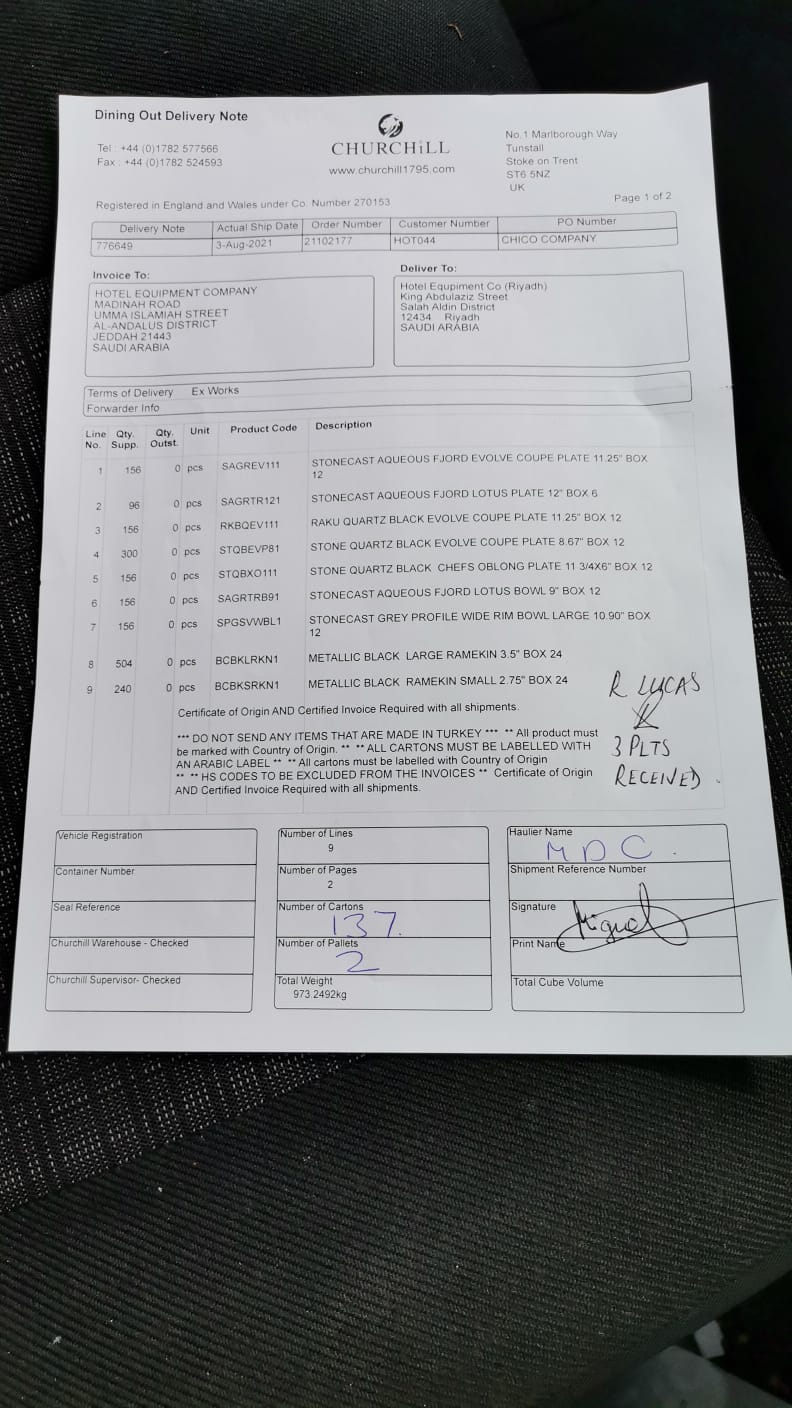 Dining Out Delivery Note
Tel : +44 (0)1782 577566
Fax : +44 (0)1782 524593
CHURCHiLL
www.churchill1795.com
No.1 Marlborough Way
Tunstall
Stoke on Trent
ST6 5NZ
UK
Registered in England and Wales under Co. Number 270153
Page 1 of 2
Delivery Note Actual Ship Date Order Number Customer Number PO Number
776649 3-Aug-2021 21102177 HOT044 CHICO COMPANY
Invoice To:
HOTEL EQUIPMENT COMPANY
MADINAH ROAD
UMMA ISLAMIAH STREET
AL-ANDALUS DISTRICT
JEDDAH 21443
SAUDI ARABIA
Deliver To:
Hotel Equpiment Co (Riyadh)
King Abdulaziz Street
Salah Aldin District
12434 Riyadh
SAUDI ARABIA
Terms of Delivery Ex Works
Forwarder Info
Line No. Qty. Supp. Qty. Outst. Unit Product Code Description
1 156 0 pcs SAGREV111 STONECAST AQUEOUS FJORD EVOLVE COUPE PLATE 11.25" BOX
12
2 96 0 pcs SAGRTR121 STONECAST AQUEOUS FJORD LOTUS PLATE 12" BOX 6
3 156 0 pcs RKBQEV111 RAKU QUARTZ BLACK EVOLVE COUPE PLATE 11.25" BOX 12
4 300 0 pcs STQBEVP81 STONE QUARTZ BLACK EVOLVE COUPE PLATE 8.67" BOX 12
5 156 0 pcs STQBXO111 STONE QUARTZ BLACK CHEFS OBLONG PLATE 11 3/4X6" BOX 12
6 156 0 pcs SAGRTRB91 STONECAST AQUEOUS FJORD LOTUS BOWL 9" BOX 12
7 156 0 pcs SPGSVWBL1 STONECAST GREY PROFILE WIDE RIM BOWL LARGE 10.90" BOX
12
8 504 0 pcs BCBKLRKN1 METALLIC BLACK LARGE RAMEKIN 3.5" BOX 24
9 240 0 pcs BCBKSRKN1 METALLIC BLACK RAMEKIN SMALL 2.75" BOX 24
Certificate of Origin AND Certified Invoice Required with all shipments.
*** DO NOT SEND ANY ITEMS THAT ARE MADE IN TURKEY *** ** All product must
be marked with Country of Origin. ** ** ALL CARTONS MUST BE LABELLED WITH
AN ARABIC LABEL ** ** All cartons must be labelled with Country of Origin
** ** HS CODES TO BE EXCLUDED FROM THE INVOICES ** Certificate of Origin
AND Certified Invoice Required with all shipments.
R LUCAS
3 PLTS
RECEIVED
Vehicle Registration
Container Number
Seal Reference
Churchill Warehouse - Checked
Churchill Supervisor- Checked
Number of Lines
9
Number of Pages
2
Number of Cartons
137.
Number of Pallets
2
Total Weight
973.2492kg
Haulier Name
MDC.
Shipment Reference Number
Signature
Miguel
Print Name
Total Cube Volume